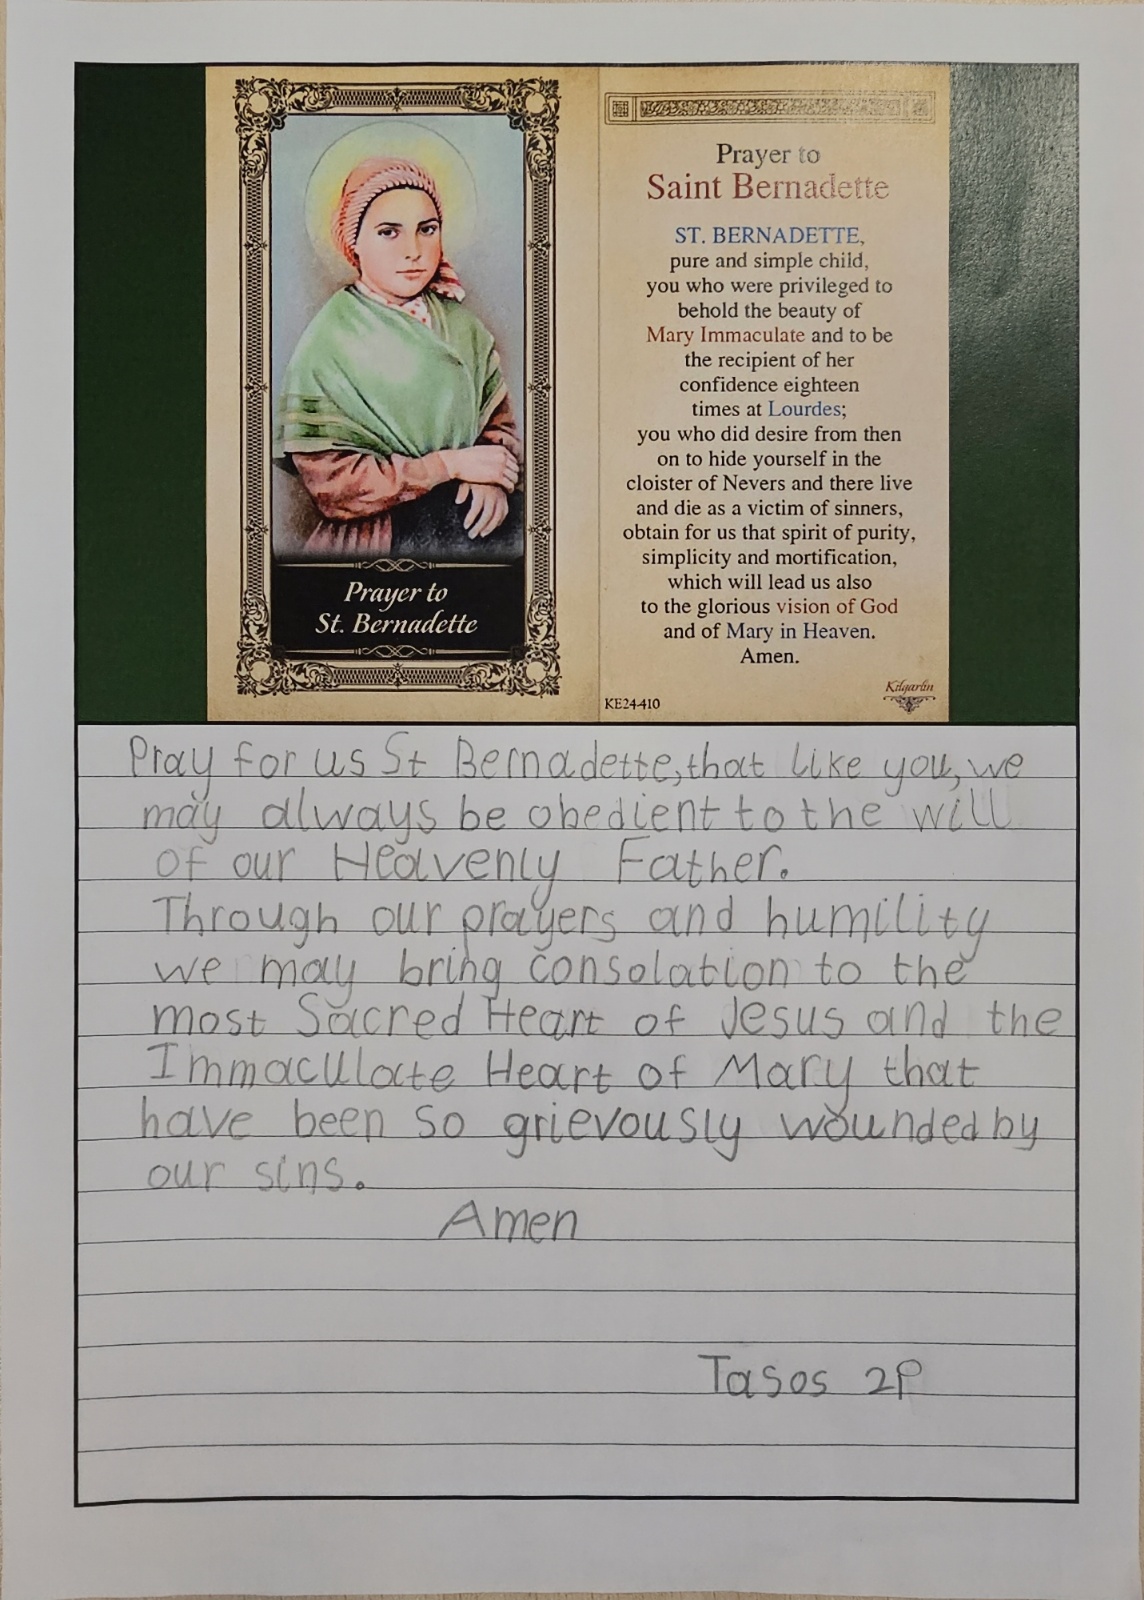 Prayer to
St. Bernadette
Prayer to
Saint Bernadette
ST. BERNADETTE,
pure and simple child,
you who were privileged to
behold the beauty of
Mary Immaculate and to be
the recipient of her
confidence eighteen
times at Lourdes;
you who did desire from then
on to hide yourself in the
cloister of Nevers and there live
and die as a victim of sinners,
obtain for us that spirit of purity,
simplicity and mortification,
which will lead us also
to the glorious vision of God
and of Mary in Heaven.
Amen.
Kilgarlin
KE24-410
Pray for us St Bernadette, that like you, we
may always be obedient to the will
of our Heavenly Father.
Through our prayers and humility
we may bring consolation to the
most Sacred Heart of Jesus and the
Immaculate Heart of Mary that
have been so grievously wounded by
our sins.
Amen
Tasos 2P